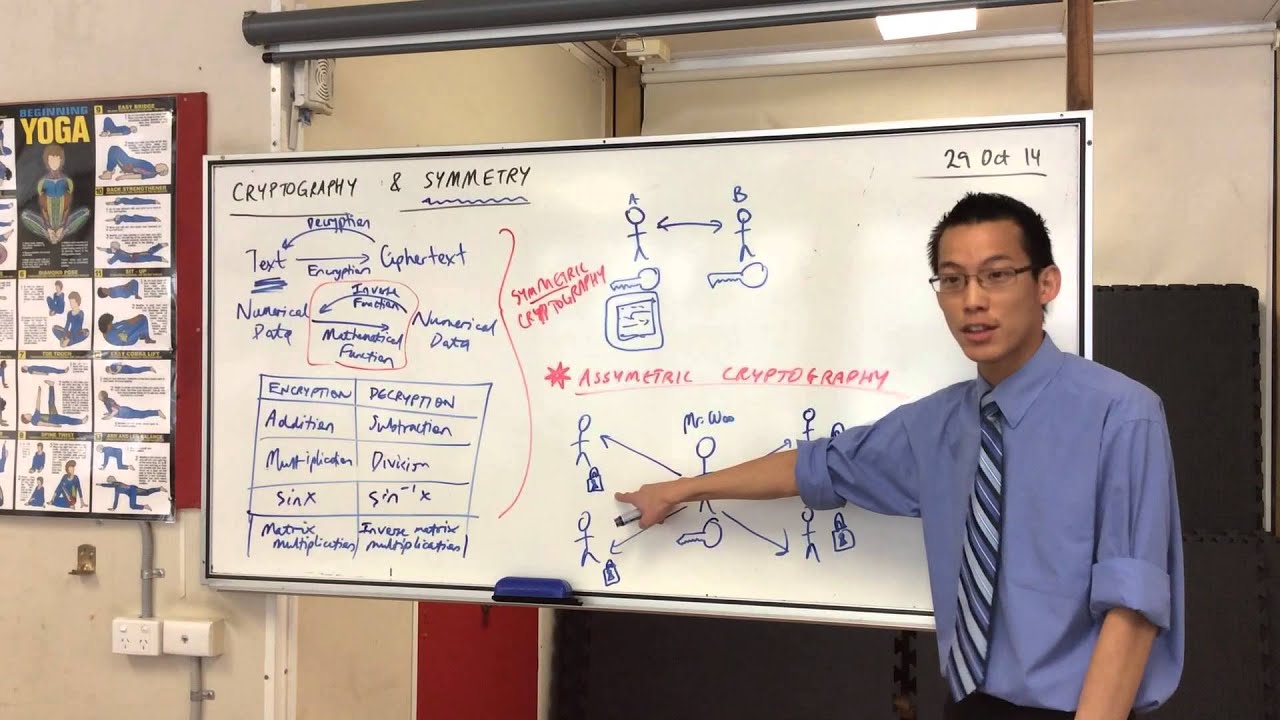 BEGINNING
YOGA
EASY BRIDGE
BACK STRENGTHENER
DIAMOND POSE
SIT-UP
TOE TOUCH
EASY COBRA LIFT
SPINE TWIST
ARM AND LEG BALANCE
CRYPTOGRAPHY & SYMMETRY
29 Oct 14
Decryption
Text
Ciphertext
Encryption
Numerical
Data
Inverse
Function
Mathematical
Function
Numerical
Data
ENCRYPTION DECRYPTION
Addition Subtraction
Multiplication Division
sin x sin⁻¹x
Matrix multiplication Inverse matrix multiplication
SYMMETRIC
CRYPTOGRAPHY
A B
* ASSYMETRIC CRYPTOGRAPHY
Mr. Woo